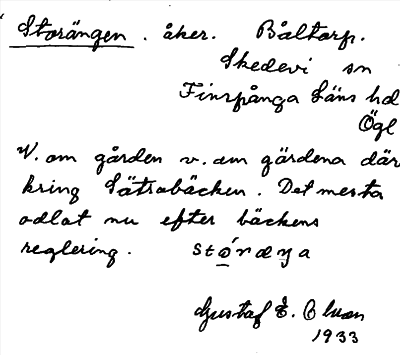 Storängen. åker. Båltorp.
Skedevi sn
Finspånga Läns hd
Ögl
V. om gården v. om gärdena där
kring Sätrabäcken. Det mesta
odlat nu efter bäckens
reglering. stóræŋa
Gustaf E.
1933